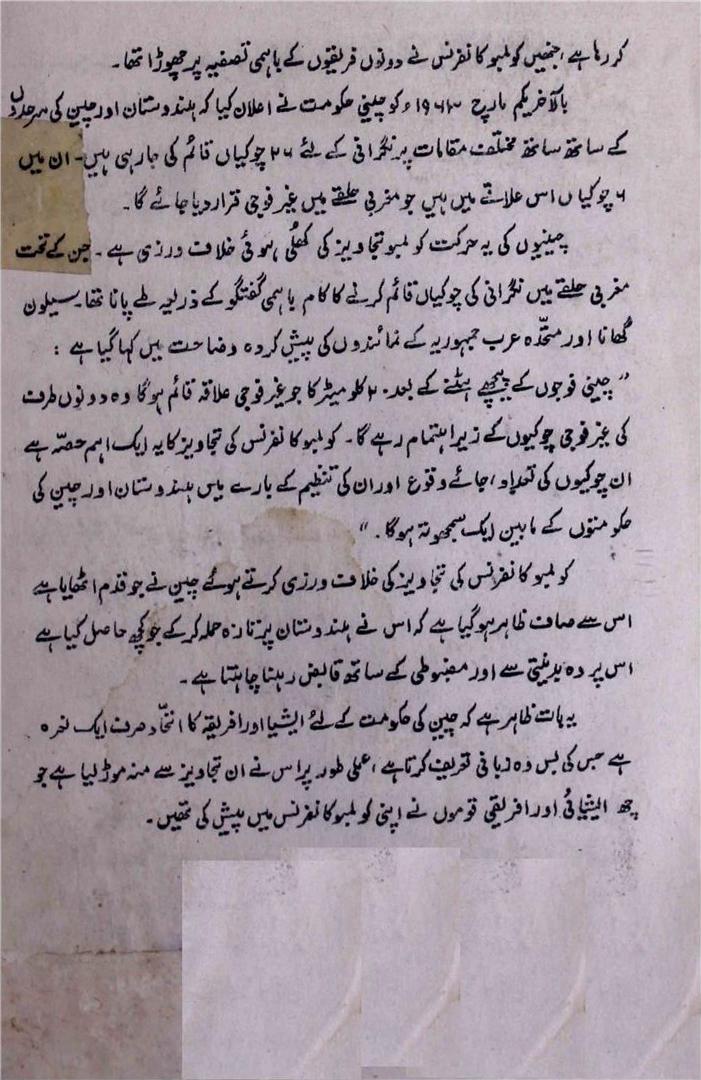 کر رہا ہے، جنھیں کولمبو کانفرنس نے دونوں فریقوں کے باہمی تصفیہ پر چھوڑا تھا۔
بالآخر یکم مارچ ۱۹۶۳ء کو چینی حکومت نے اعلان کیا کہ ہندوستان اور چین کی سرحدوں
کے ساتھ ساتھ مختلف مقامات پر نگرانی کے لئے ۲۶ چوکیاں قائم کی جا رہی ہیں۔ ان میں
۶ چوکیاں اس علاقے میں ہیں جو مغربی حلقے میں غیر فوجی قرار دیا جائے گا۔
چینیوں کی یہ حرکت کولمبو تجاویز کی کھلی ہوئی خلاف ورزی ہے۔ جن کے تحت
مغربی حلقے میں نگرانی کی چوکیاں قائم کرنے کا کام باہمی گفتگو کے ذریعہ طے پانا تھا۔ سیلون
گھانا اور متحدہ عرب جمہوریہ کے نمائندوں کی پیش کردہ وضاحت میں کہا گیا ہے :
"چینی فوجوں کے پیچھے ہٹنے کے بعد ۲۰ کلو میٹر کا جو غیر فوجی علاقہ قائم ہوگا وہ دونوں طرف
کی غیر فوجی چوکیوں کے زیر اہتمام رہے گا۔ کولمبو کانفرنس کی تجاویز کا یہ ایک اہم حصّہ ہے
ان چوکیوں کی تعداد، جائے وقوع اور ان کی تنظیم کے بارے میں ہندوستان اور چین کی
حکومتوں کے مابین ایک سمجھوتہ ہوگا۔"
کولمبو کانفرنس کی تجاویز کی خلاف ورزی کرتے ہوئے چین نے جو قدم اٹھایا ہے
اس سے صاف ظاہر ہو گیا ہے کہ اس نے ہندوستان پر تازہ حملہ کر کے جو کچھ حاصل کیا ہے
اس پر وہ بدنیتی سے اور مضبوطی کے ساتھ قابض رہنا چاہتا ہے۔
یہ بات ظاہر ہے کہ چین کی حکومت کے لئے ایشیا اور افریقہ کا اتحاد صرف ایک نعرہ
ہے جس کی بس وہ زبانی تعریف کرتا ہے، عملی طور پر اس نے ان تجاویز سے منہ موڑ لیا ہے جو
چھ ایشیائی اور افریقی قوموں نے اپنی کولمبو کانفرنس میں پیش کی تھیں۔